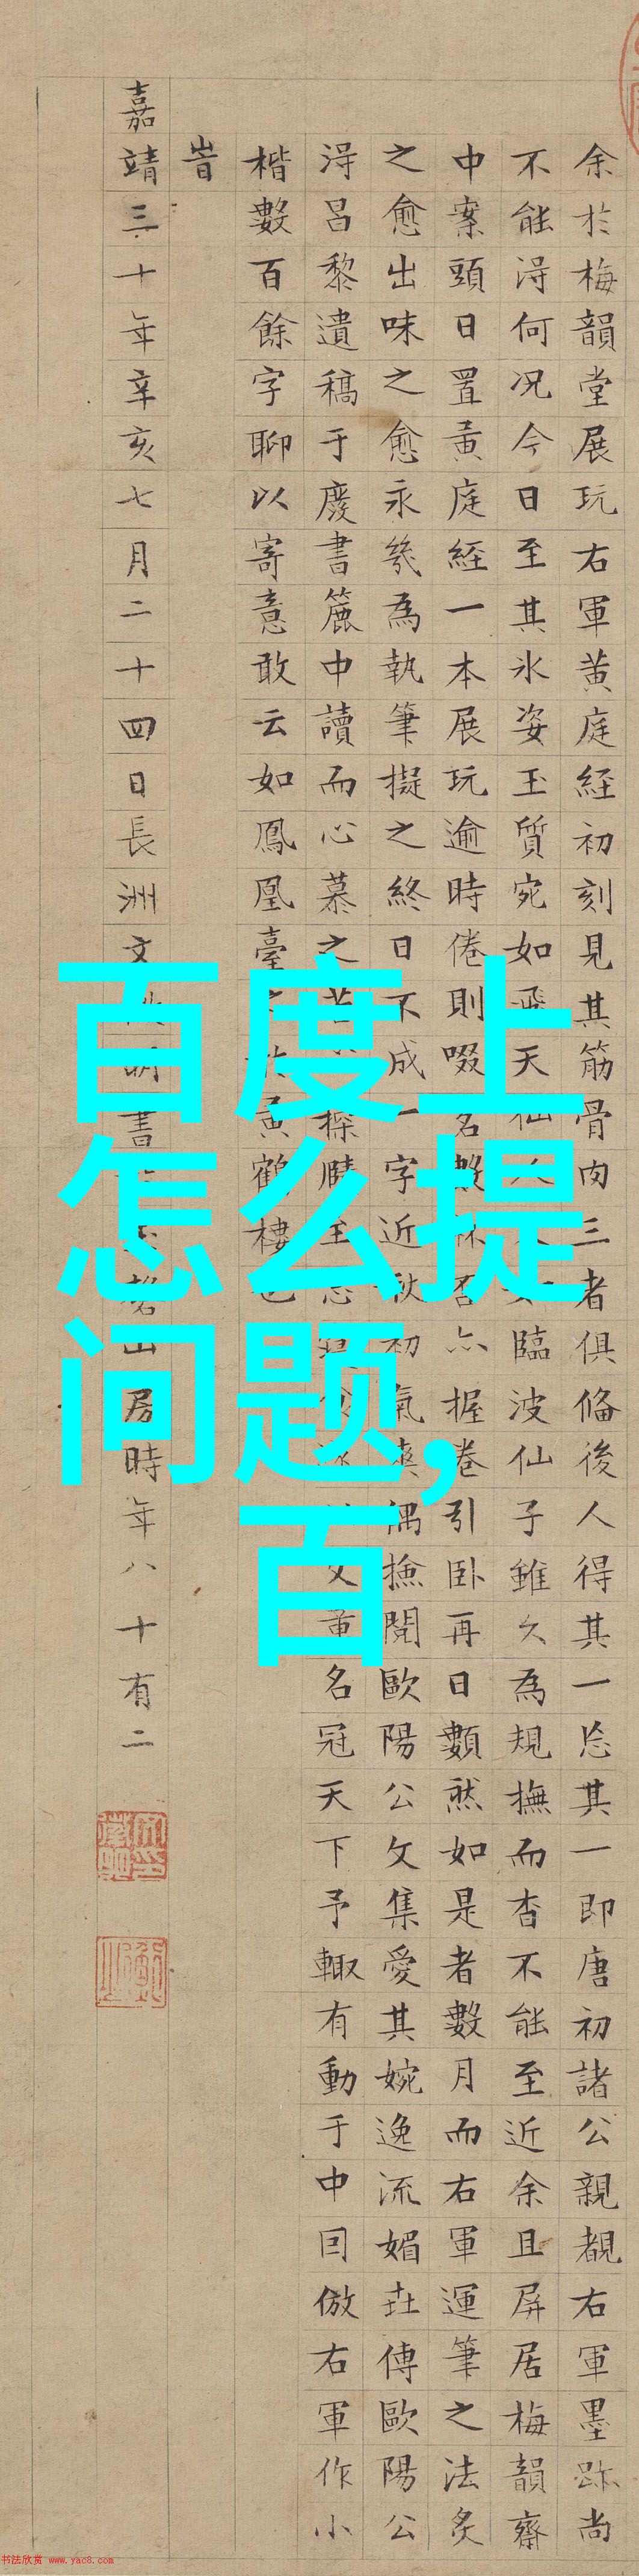 百度上
怎么提
问题,
百
余於梅韻堂展玩右軍黃庭経初刻見其筋骨肉三者俱俻後人得其一忘其一即唐初諸公親覩右軍墨跡尚
不能淂何况今日至其氷姿玉質宛如飛天仙臨波仙子雖久為規撫而杳不能至近余且屏居梅韻齋
中案頭日置黃庭経一本展玩逾時倦則啜茗數杯否亦握卷引卧再日數然如是者數月而右軍運筆之法炙
之愈出味之愈永為執筆擬之終日不成一字近秋初氣爽偶撿閱歐陽公文集愛其婉逸流媚傳歐陽公
淂呂黎遺稿于廢書簏中讀而心慕之苦探賾至忘文章名冠天下予輙有動于中囙倣右軍作小
楷數百餘字聊以寄意敢云如鳳凰臺之於黃鶴樓也
旹
嘉靖三十年辛亥七月二十四日長洲文徵明書磬山房時年八十有二
书法欣赏 www.yac8.com